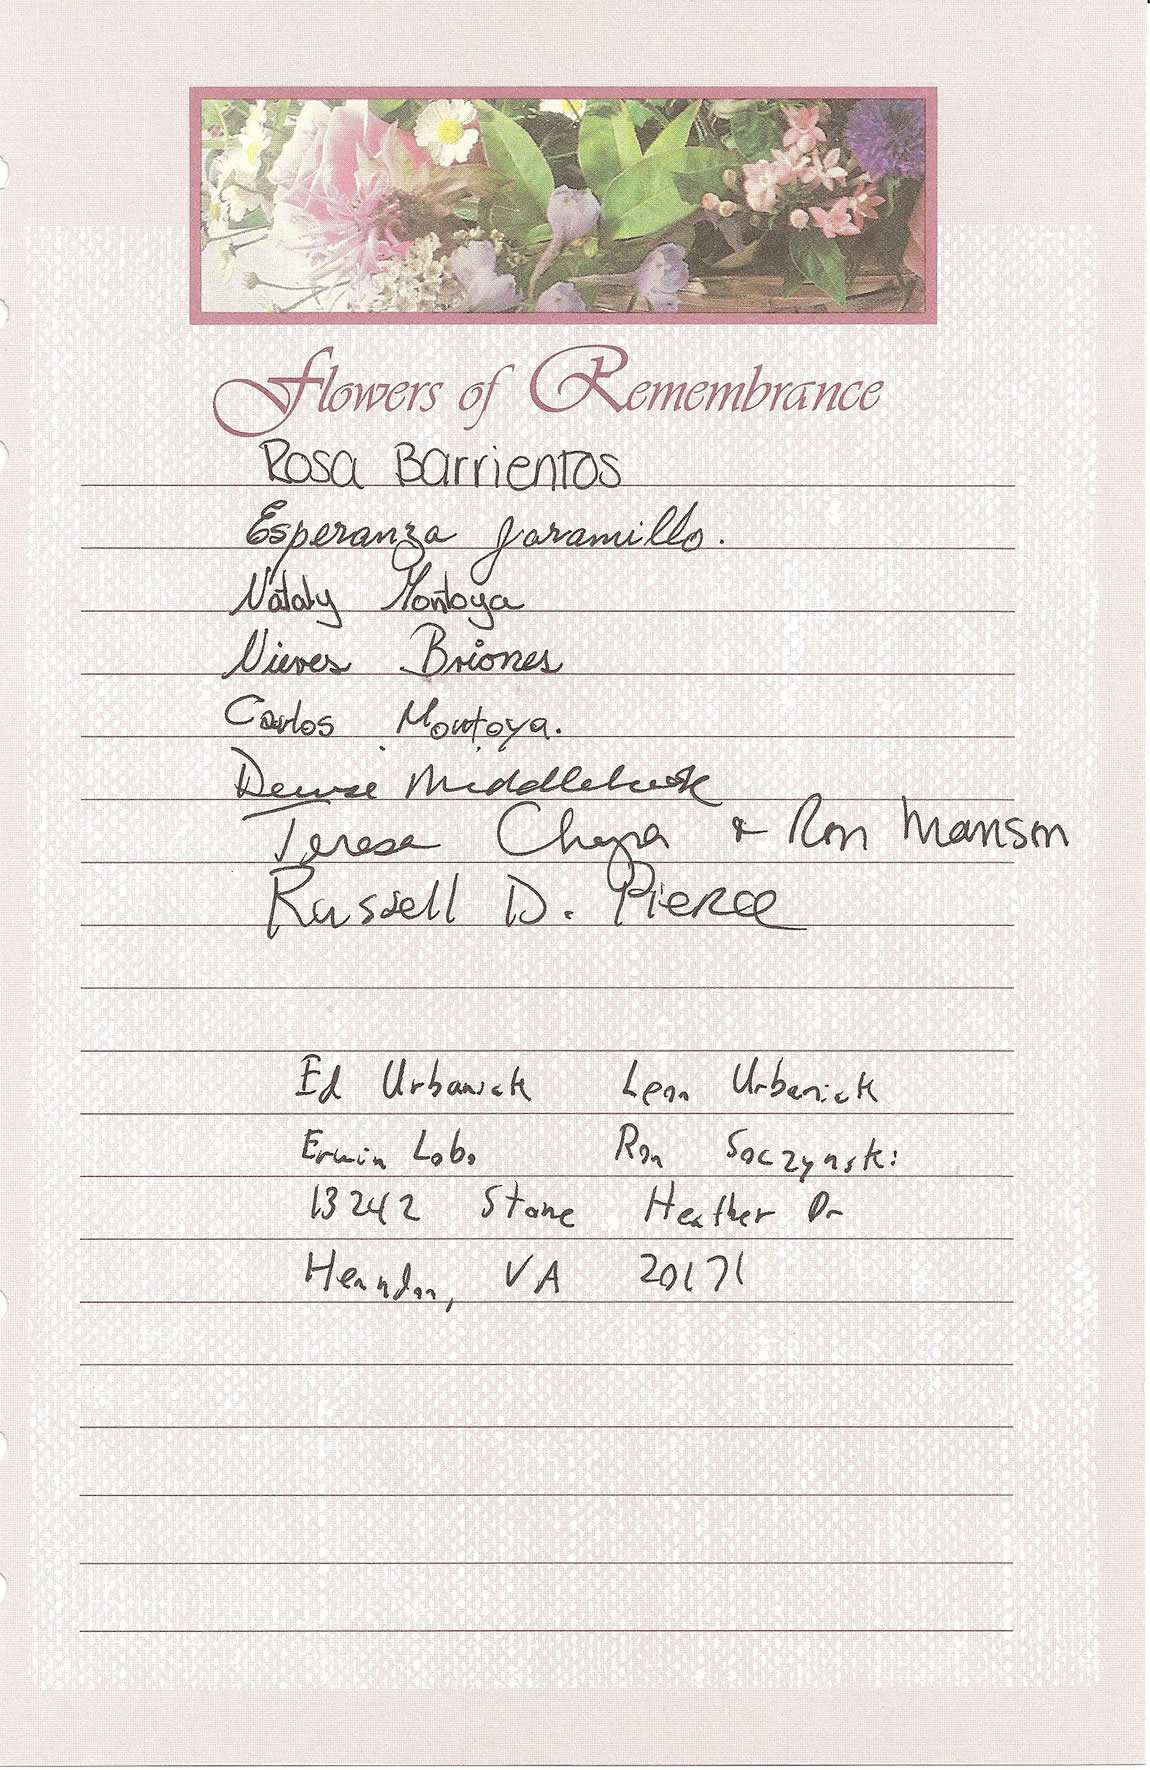 Flowers of Remembrance
Rosa Barrientos
Esperanza Jaramillo.
Nataly Montoya
Nieves Briones
Carlos Montoya.
Denise
Teresa & Ron Manson
Russell D. Pierce
Ed Urbanick Leon Urbanick
Erwin Lobo Ron Soczynski
13242 Stone Heather Dr
Herndon, VA 20171